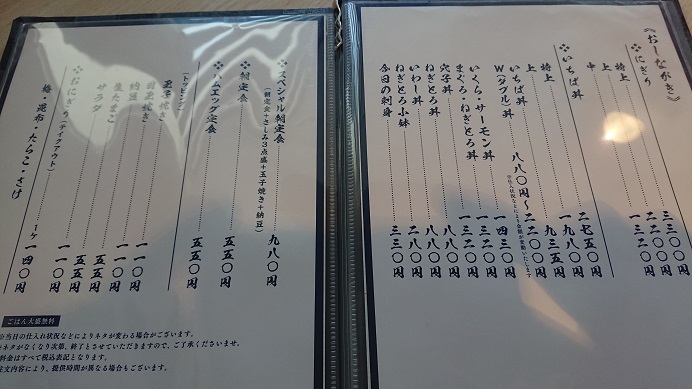 《おしながき》
❖にぎり
特上 三三〇〇円
上
中 一三二〇円
❖いちば丼
特上 二七五〇円
上 一九八〇円
いちば丼 九三五円
W(ダブル)丼 八八〇円～二二〇〇円
いくら・サーモン丼 一四三〇円
まぐろ・ねぎとろ丼
穴子丼 一三二〇円
ねぎとろ丼 八八〇円
いわし丼 八八〇円
ねぎとろ小鉢 二八〇円
今日の刺身 三三〇円
❖スペシャル朝定食 九八〇円
(朝定食+さしみ3点盛+玉子焼き+納豆)
❖朝定食 五五〇円
❖ハムエッグ定食 五五〇円
(トッピング)
玉子焼き
目玉焼き 一一〇円
納豆 五五円
生たまご 五五円
サラダ 一一〇円
❖おにぎり(テイクアウト)
梅・昆布・たらこ・さけ 1ケ 一四〇円
ごはん大盛無料
※当日の仕入れ状況などによりネタが変わる場合がございます。
ネタがなくなり次第、終了とさせていただきますので、ご了承くださいませ。
料金はすべて税込表記となります。
注文内容により、提供時間が異なる場合もございます。